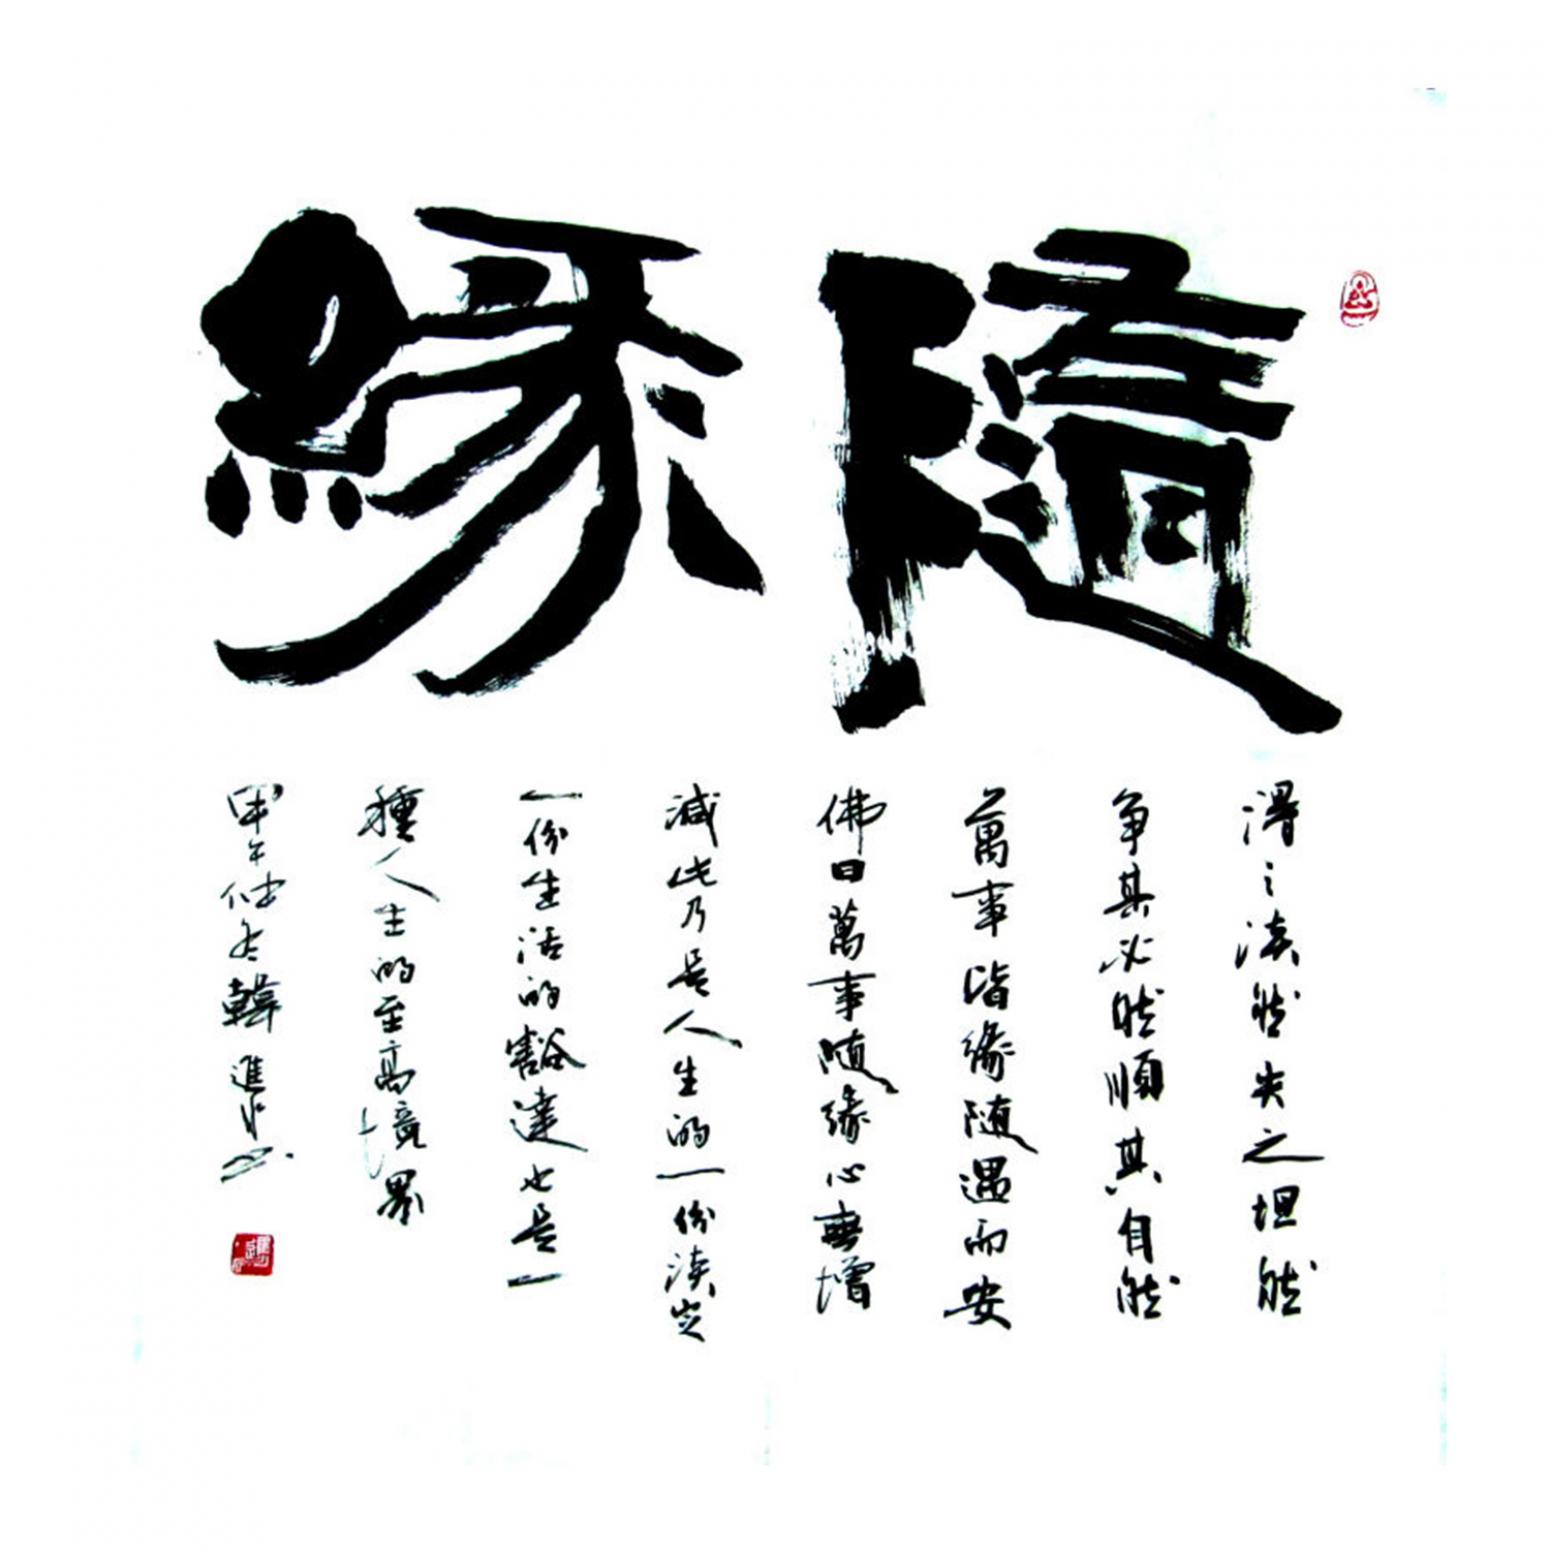 隨緣
得之淡然失之坦然
争其必然順其自然
萬事皆緣随遇而安
佛曰萬事随緣心無增
減此乃是人生的一份淡定
一份生活的豁達也是一
種人生的至高境界
甲午仲冬韓進